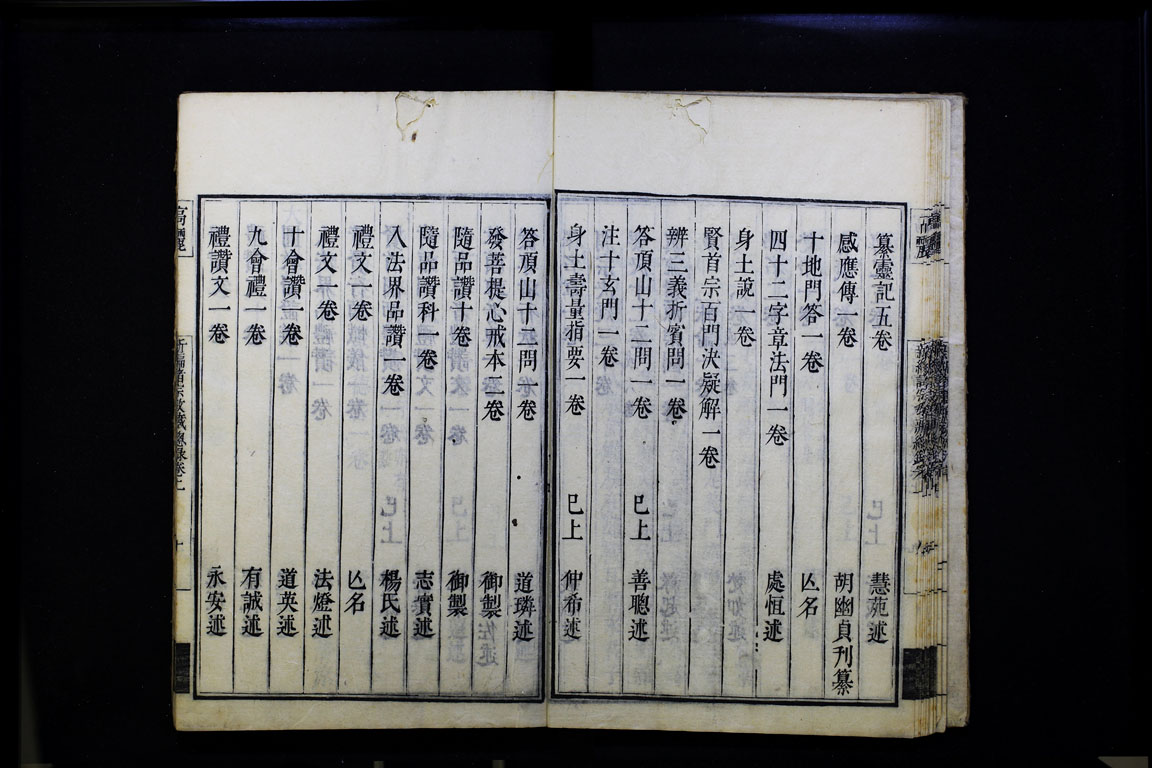 纂靈記五卷 慧苑述
感應傳一卷 胡幽貞刊纂
十地門答一卷 亾名
四十二字章法門一卷 處恒述
身土說一卷
賢首宗百門決疑解一卷
辨三義折賓問一卷
答頂山十二問一卷 已上 善聰述
注十玄門一卷
身土壽量指要一卷 已上 仲希述
答頂山十二問一卷 道璘述
發菩提心戒本二卷 御製
隨品讚十卷 御製
隨品讚科一卷 志實述
入法界品讚一卷 楊氏述
禮文一卷 亾名
禮文一卷 法燈述
十會讚一卷 道英述
九會禮一卷 有誠述
禮讚文一卷 永安述
高麗
新編諸宗教藏總錄卷一